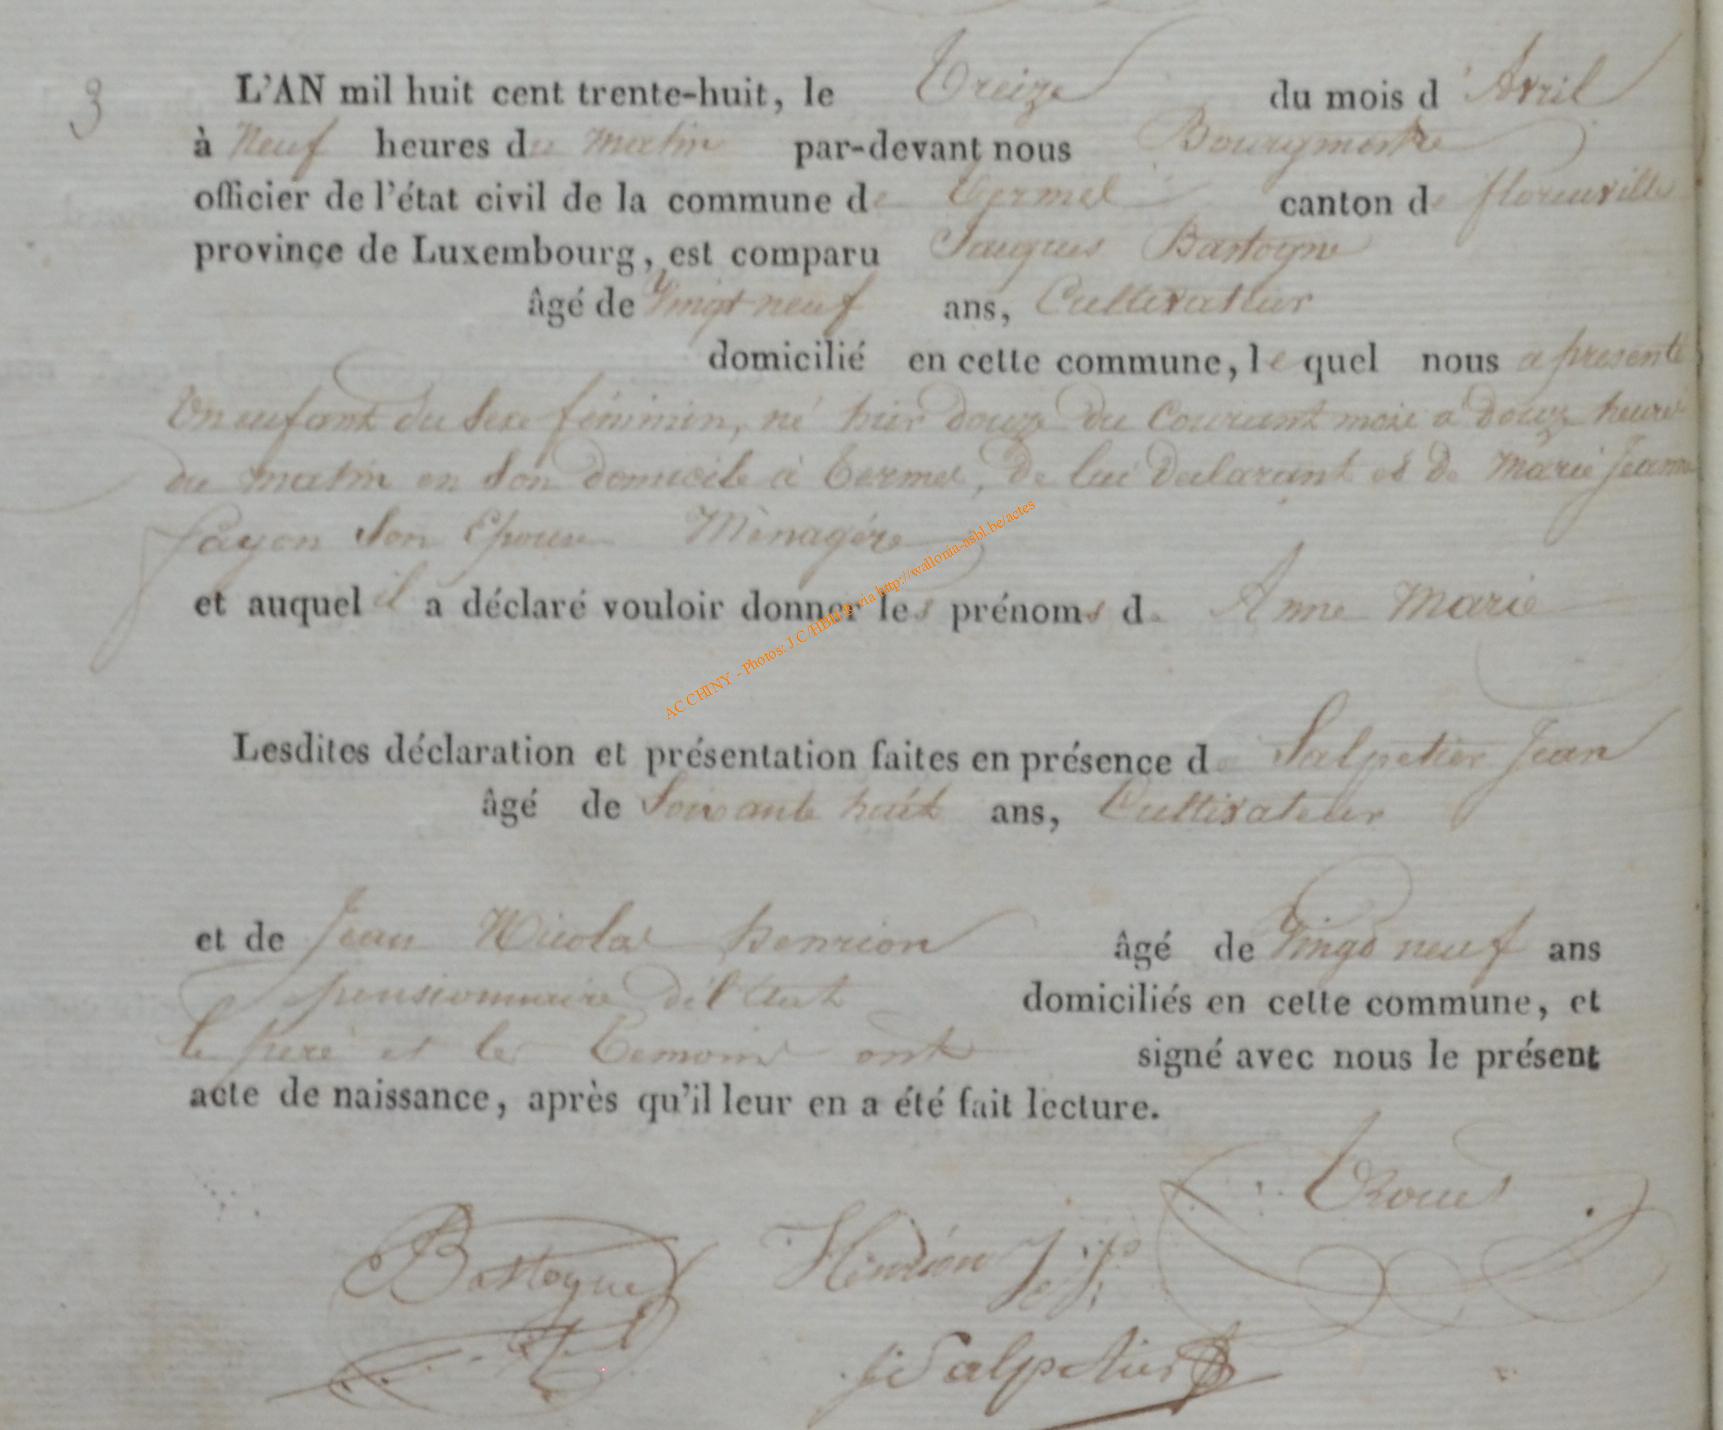 3
L'AN mil huit cent trente-huit, le Treize du mois d'Avril
à Neuf heures du Matin par-devant nous Bourgmestre
officier de l'état civil de la commune de Termes canton de florenville
province de Luxembourg, est comparu Jauques Bastogne
âgé de Vingt neuf ans, Cultivateur
domicilié en cette commune, le quel nous a presenté
Un enfant du Sexe féminin, né hier douze du Courant mois a douze heures
du matin en Son domicile à Termes, De lui Déclarant et De Marie Jeanne
fayon Son Epouse Ménagére
et auquel il a déclaré vouloir donner les prénoms de Anne Marie
AC CHINY - Photos: J C via http://wallonia-asbl.be/actes
Lesdites déclaration et présentation faites en présence de Salpetier Jean
âgé de Soixante huit ans, Cultivateur
et de Jean Nicolas henrion âgé de Vingt neuf ans
pensionnaire dél'Etat domiciliés en cette commune, et
le pere et les Temoins ont signé avec nous le présent
acte de naissance, après qu'il leur en a été fait lecture.
Bastogne Henrion
J Salpetier